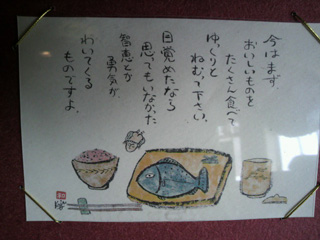 今はまず
おいしいものを
たくさん食べて
ゆっくりと
ねむって下さい。
目覚めたなら
思ってもいなかった
智恵とか
勇気が
わいてくる
ものですよ